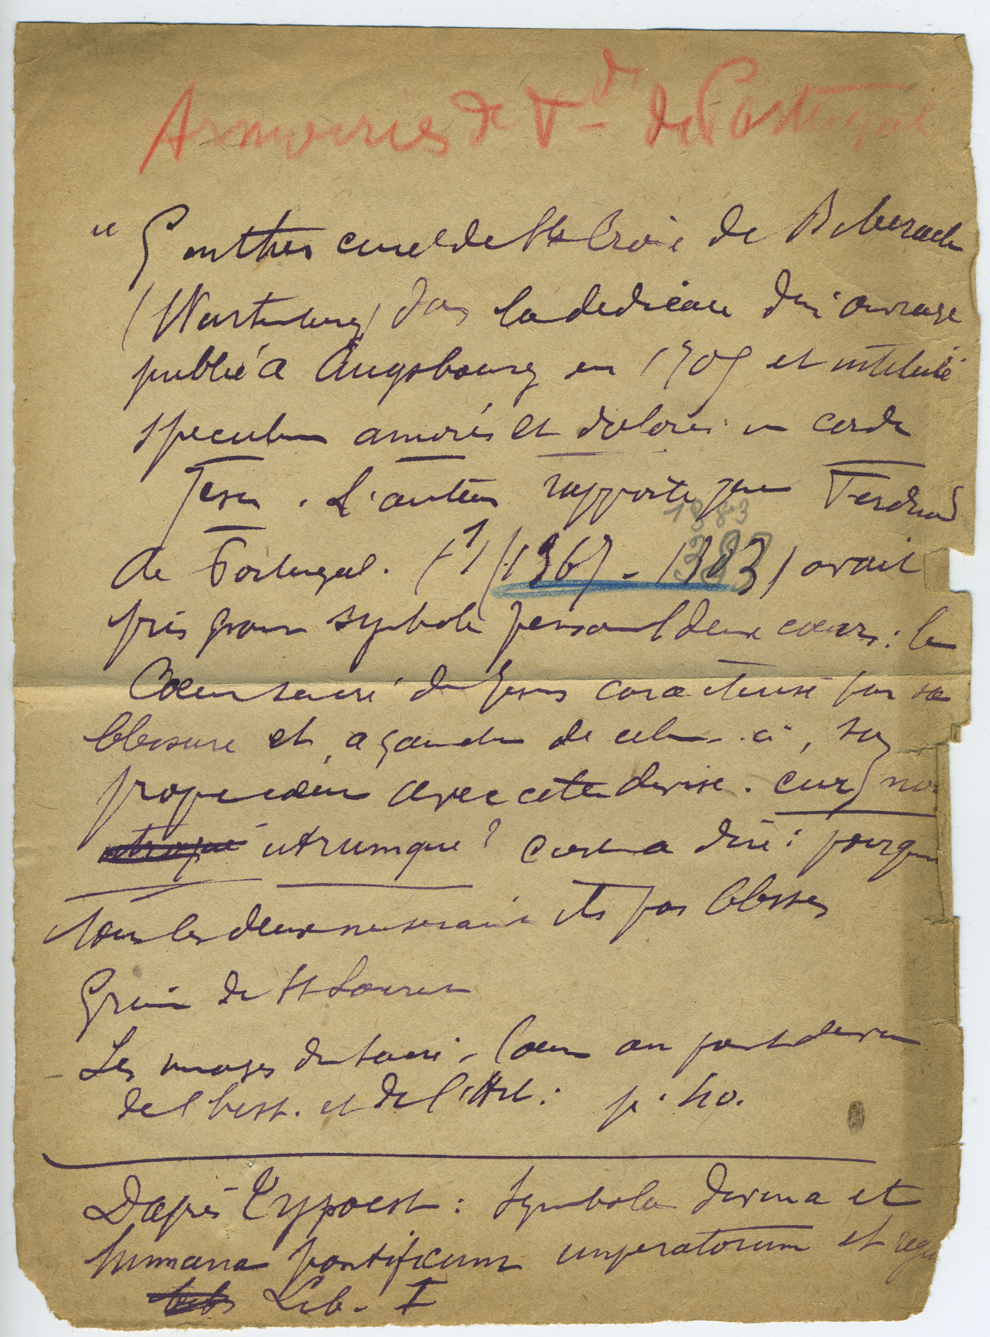 Armoiries de F-d de de Portugal
" Ginther curé de Ste Croix de Biberach
(Wurtemberg) dans la dédicace d'un ouvrage
publié à Augsbourg en 1705 et intitulé
speculum amoris et doloris in corde
Jesu. L'auteur rapporte que Ferdinand
1383
de Portugal. (1) (1367 - 1383) avait
pris pour symbole personnel deux cœurs : le
Cœur sacré de Jésus caractérisé par sa
blessure et, à gauche de celui-ci, son
propre cœur avec cette devise. cur non
utrumque? c'est à dire : pourquoi
tous les deux ne seraient ils pas blessés
Grim de St Laurent
Les images du Sacré-Cœur au point de vue
de l'hist. et de l'Art : p. 40.
D'après Typoest : Symbola divina et
humana pontificum imperatorum et regum
Lib. I